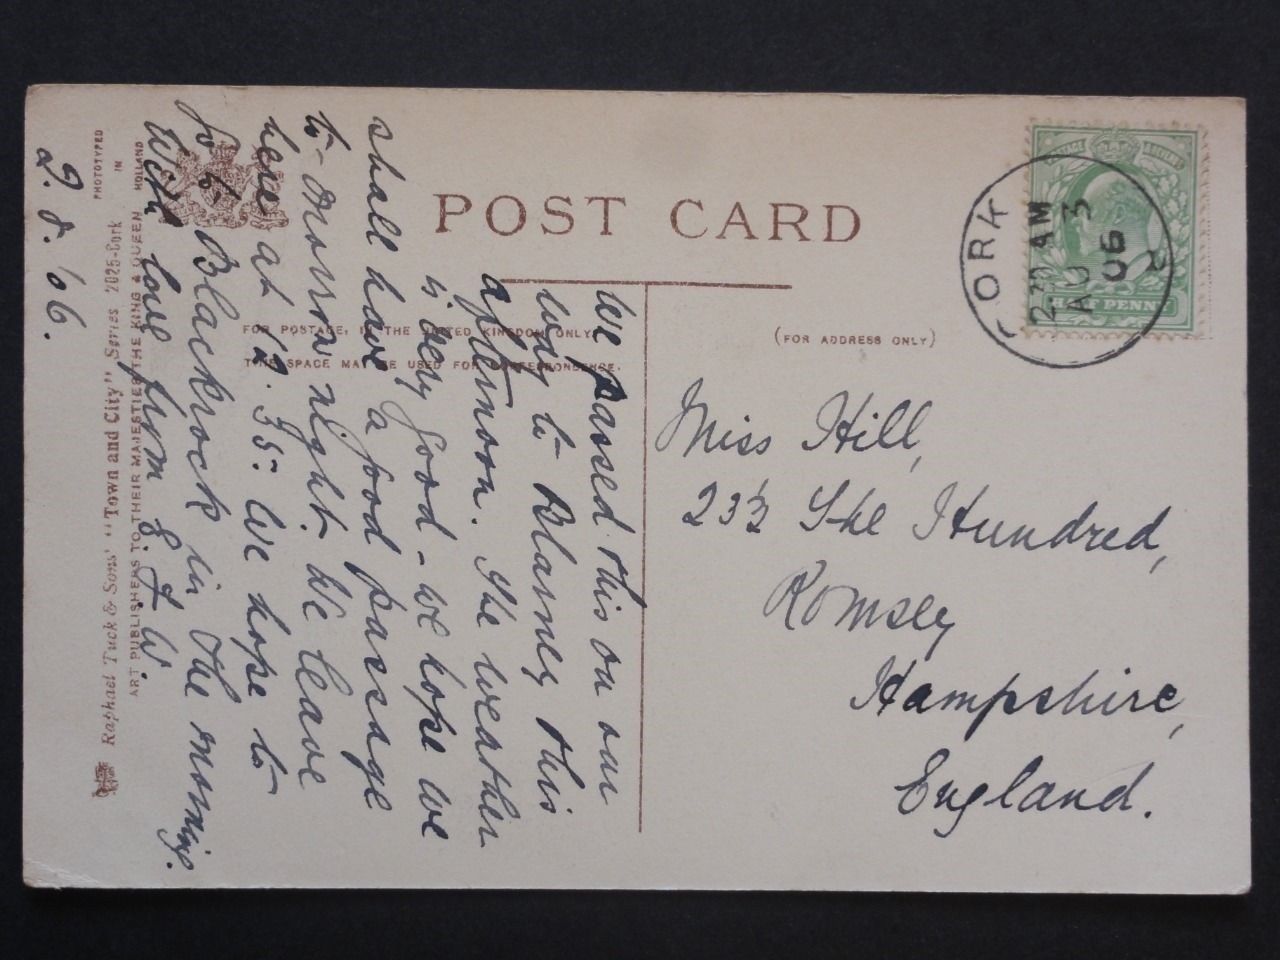 POST CARD
FOR POSTAGE, IN THE UNITED KINGDOM ONLY,
THIS SPACE MAY BE USED FOR CORRESPONDENCE.
(FOR ADDRESS ONLY)
We passed this on our
way to Blarney this
afternoon. The weather
is very good - we hope we
shall have a good passage
to-morrow night. We leave
here at 12.35. We hope to
go to Blackrock in the morning.
With love from E. J. W.
2.8.'06.
Miss Hill,
233 The Hundred,
Romsey
Hampshire,
England.
CORK
AM
AU 3
06
HALF PENNY
PHOTOTYPED
IN
HOLLAND
Raphael Tuck & Sons' "Town and City" Series 2025-Cork
ART PUBLISHERS TO THEIR MAJESTIES THE KING & QUEEN